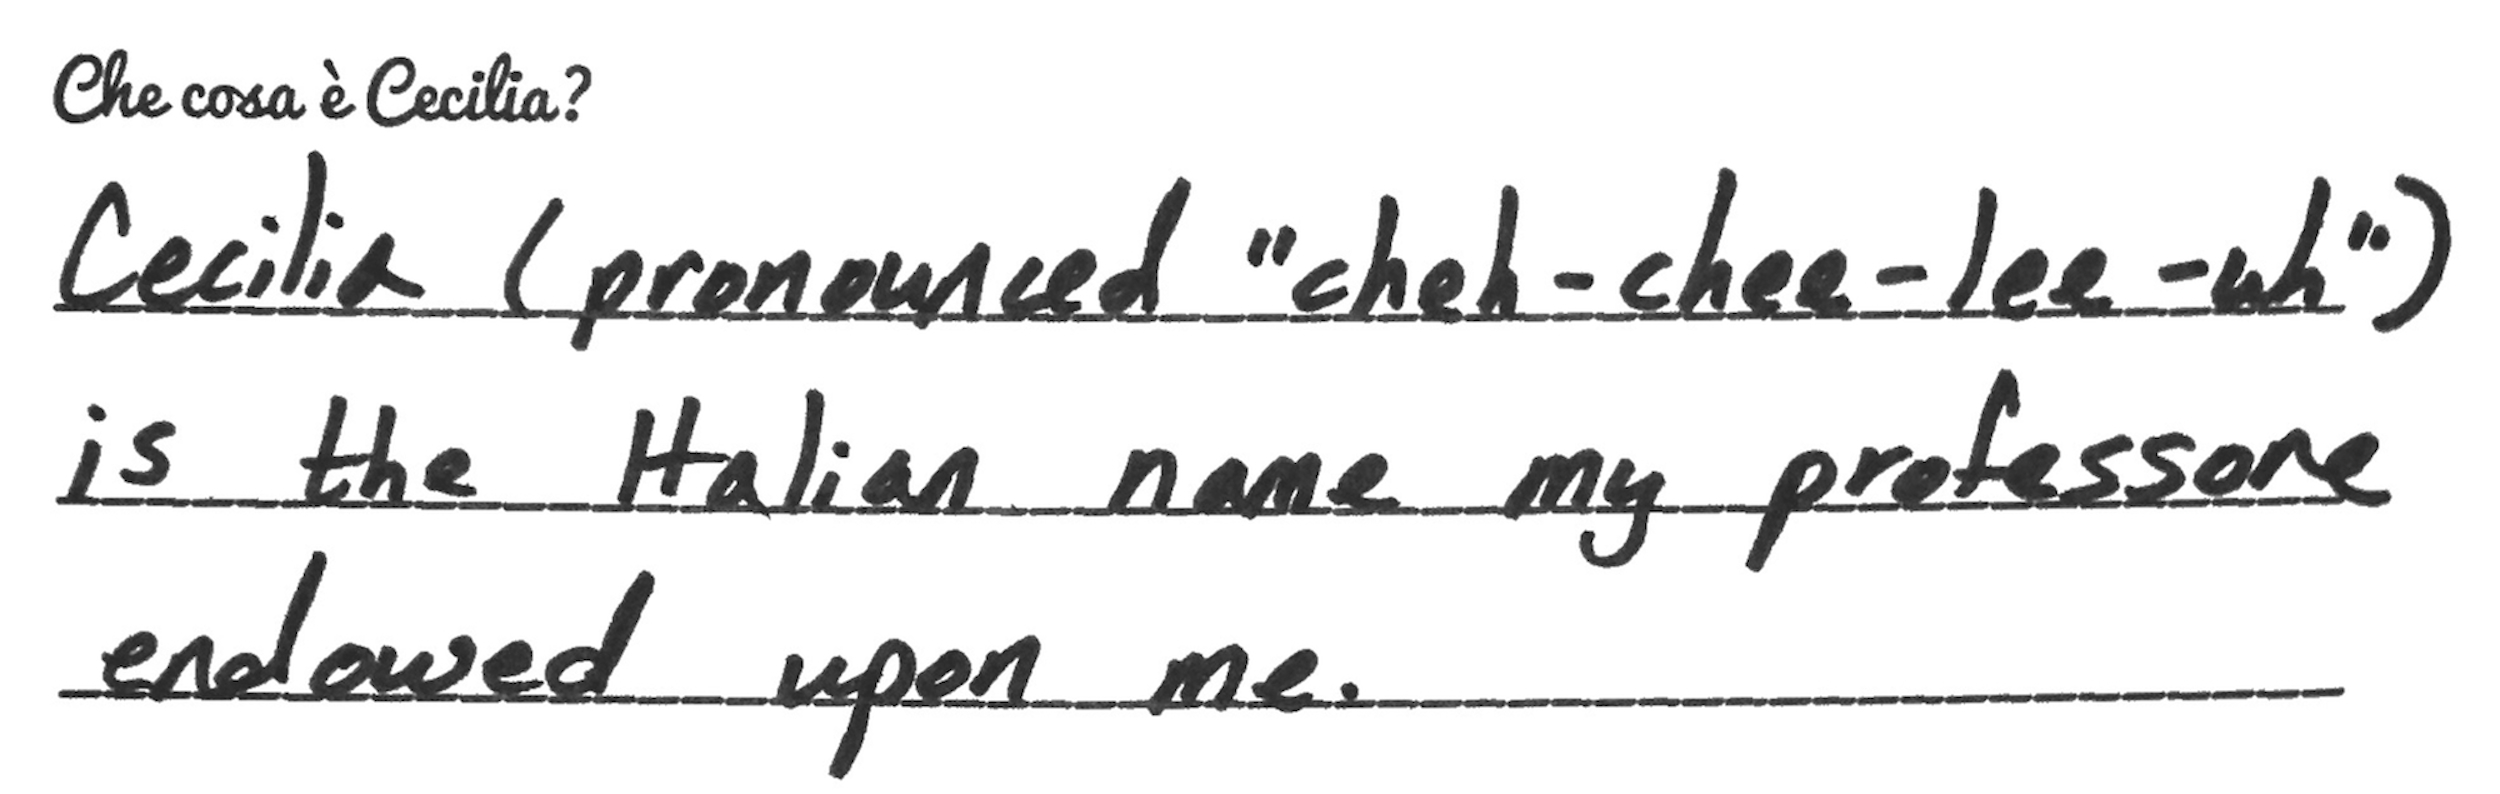 Che cosa è Cecilia?
Cecilia (pronounced "cheh-chee-lee-uh")
is the Italian name my professore
endowed upon me.